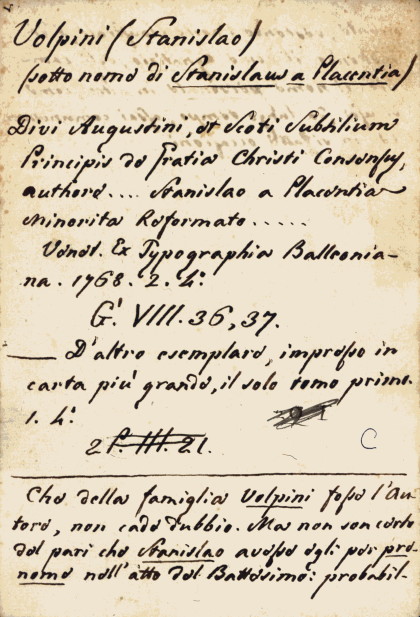 Volpini (Stanislao)
(sotto nome di Stanislaus a Placentia)
Divi Augustini, et Scoti Subtilium
Principis de Gratia Christi Consensus,
authore.... Stanislao a Placentia
Minorita Reformato.....
Venet. Ex Typographia Balleonia-
na. 1768. 2. 4.º
G. VIII. 36, 37.
— D'altro esemplare, impresso in
carta più grande, il solo tomo primo.
1. 4.º
C
Che della famiglia Volpini fosse l'Au-
tore, non cade dubbio. Ma non son certo
del pari che Stanislao avesse egli per pre-
nome nell'atto del Battesimo: probabil-